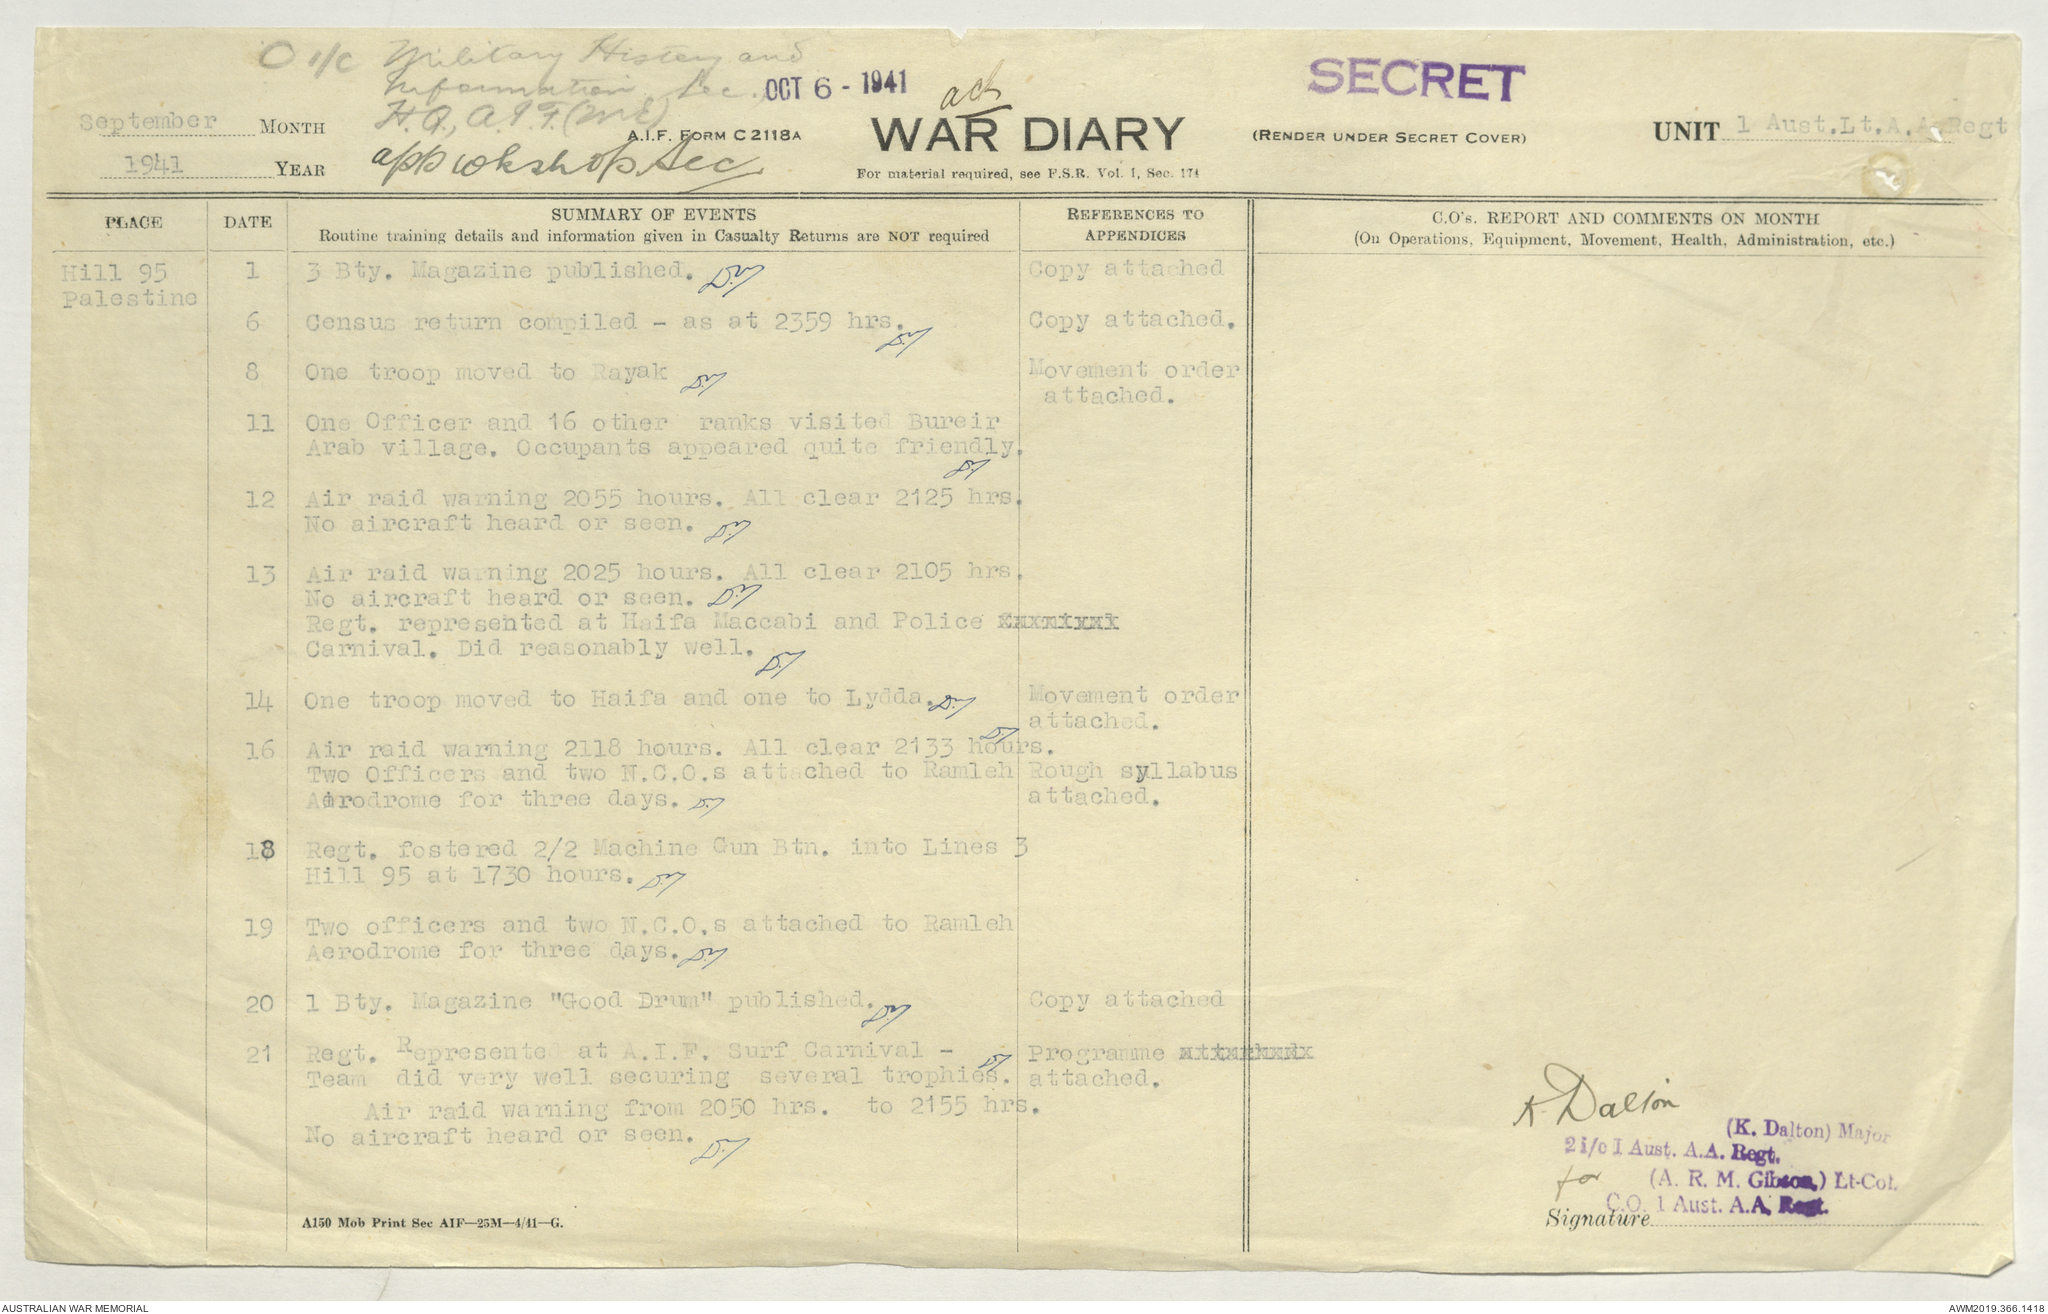 O i/c Military History and
Information Sec.,
H.Q., A.I.F. (M.E)
OCT 6 - 1941
SECRET
September MONTH
1941 YEAR
A.I.F. FORM C2118A
WAR DIARY
(RENDER UNDER SECRET COVER)
For material required, see F.S.R. Vol. 1, Sec. 174
UNIT 1 Aust.Lt.A.A.Regt
PLACE
DATE
SUMMARY OF EVENTS
Routine training details and information given in Casualty Returns are NOT required
REFERENCES TO
APPENDICES
C.O's. REPORT AND COMMENTS ON MONTH
(On Operations, Equipment, Movement, Health, Administration, etc.)
Hill 95
Palestine
1 3 Bty. Magazine published. Copy attached
6 Census return compiled - as at 2359 hrs. Copy attached.
8 One troop moved to Rayak Movement order
attached.
11 One Officer and 16 other ranks visited Bureir
Arab village. Occupants appeared quite friendly.
12 Air raid warning 2055 hours. All clear 2125 hrs.
No aircraft heard or seen.
13 Air raid warning 2025 hours. All clear 2105 hrs.
No aircraft heard or seen.
Regt. represented at Haifa Maccabi and Police
Carnival. Did reasonably well.
14 One troop moved to Haifa and one to Lydda. Movement order
attached.
16 Air raid warning 2118 hours. All clear 2133 hours.
Two Officers and two N.C.O.s attached to Ramleh Rough syllabus
Aerodrome for three days. attached.
18 Regt. fostered 2/2 Machine Gun Btn. into Lines 3
Hill 95 at 1730 hours.
19 Two officers and two N.C.O.s attached to Ramleh
Aerodrome for three days.
20 1 Bty. Magazine "Good Drum" published. Copy attached
21 Regt. Represented at A.I.F. Surf Carnival - Programme
Team did very well securing several trophies. attached.
Air raid warning from 2050 hrs. to 2155 hrs.
No aircraft heard or seen.
K. Dalton
(K. Dalton) Major
2 i/c 1 Aust. A.A. Regt.
for (A. R. M. Gibson,) Lt-Col.
C.O. 1 Aust. A.A. Regt.
Signature
A150 Mob Print Sec AIF—25M—4/41—G.
AUSTRALIAN WAR MEMORIAL
AWM2019.366.1418